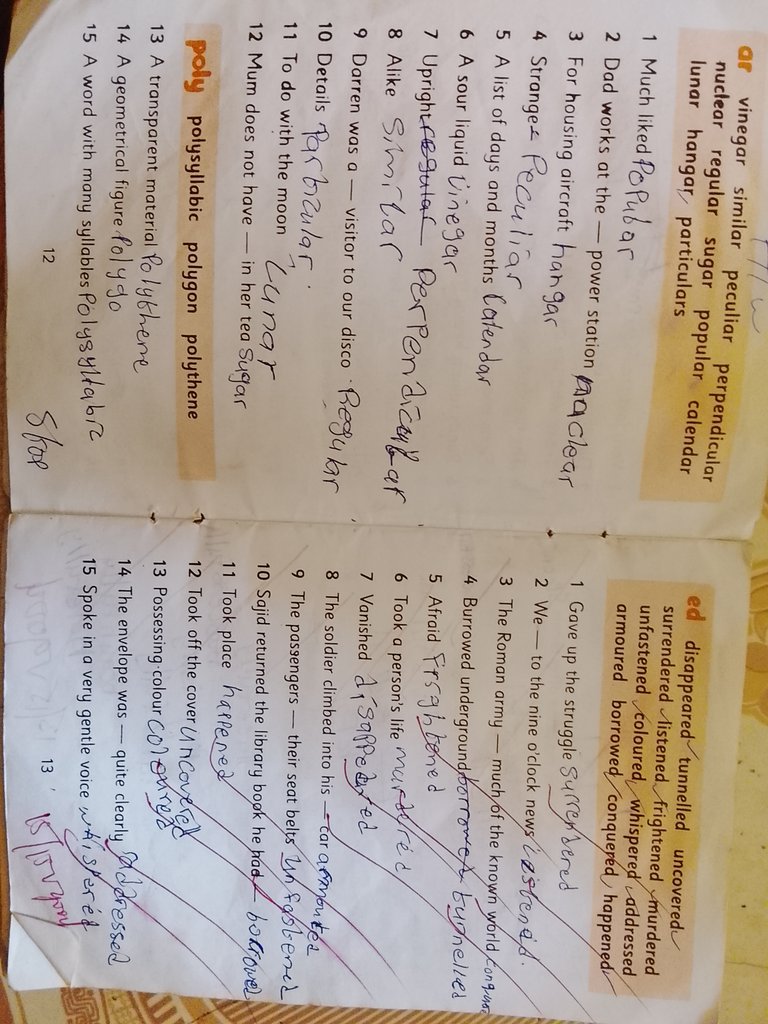 ar vinegar similar peculiar perpendicular
nuclear regular sugar popular calendar
lunar hangar particulars
1 Much liked Popular
2 Dad works at the — power station nuclear
3 For housing aircraft hangar
4 Strange Peculiar
5 A list of days and months Calendar
6 A sour liquid Vinegar
7 Upright regular Perpendicular
8 Alike Similar
9 Darren was a — visitor to our disco Regular
10 Details Particular.
11 To do with the moon Lunar
12 Mum does not have — in her tea Sugar
poly polysyllabic polygon polythene
13 A transparent material Polythene
14 A geometrical figure Polygo
15 A word with many syllables Polysyllabic
12
Stop
ed disappeared tunnelled uncovered
surrendered listened frightened murdered
unfastened coloured whispered addressed
armoured borrowed conquered happened
1 Gave up the struggle surrendered
2 We — to the nine o'clock news
3 The Roman army — much of the known world
4 Burrowed underground borrowed tunnelled
5 Afraid frightened
6 Took a person's life murdered
7 Vanished disappeared
8 The soldier climbed into his — car armoured
9 The passengers — their seat belts Unfastened
10 Sajid returned the library book he had — borrowed
11 Took place happened
12 Took off the cover Uncovered
13 Possessing colour coloured
14 The envelope was — quite clearly addressed
15 Spoke in a very gentle voice
13